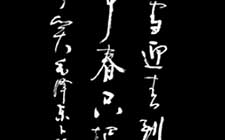 雪迎春到
春只把
笑毛泽东